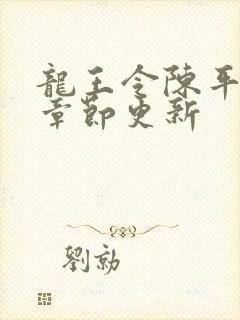 龍王令陳平
章節更新
劉勍